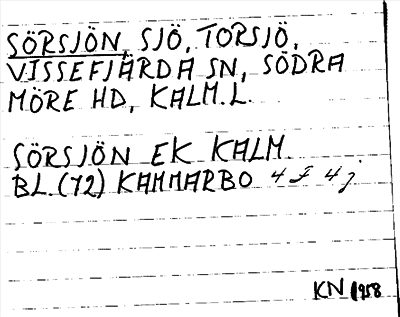 SÖRSJÖN, SJÖ, TORSJÖ,
VISSEFJÄRDA SN, SÖDRA
MÖRE HD, KALM. L.
SÖRSJÖN EK KALM.
BL. (72) KAMMARBO 4 f 4 j.
KN 1958